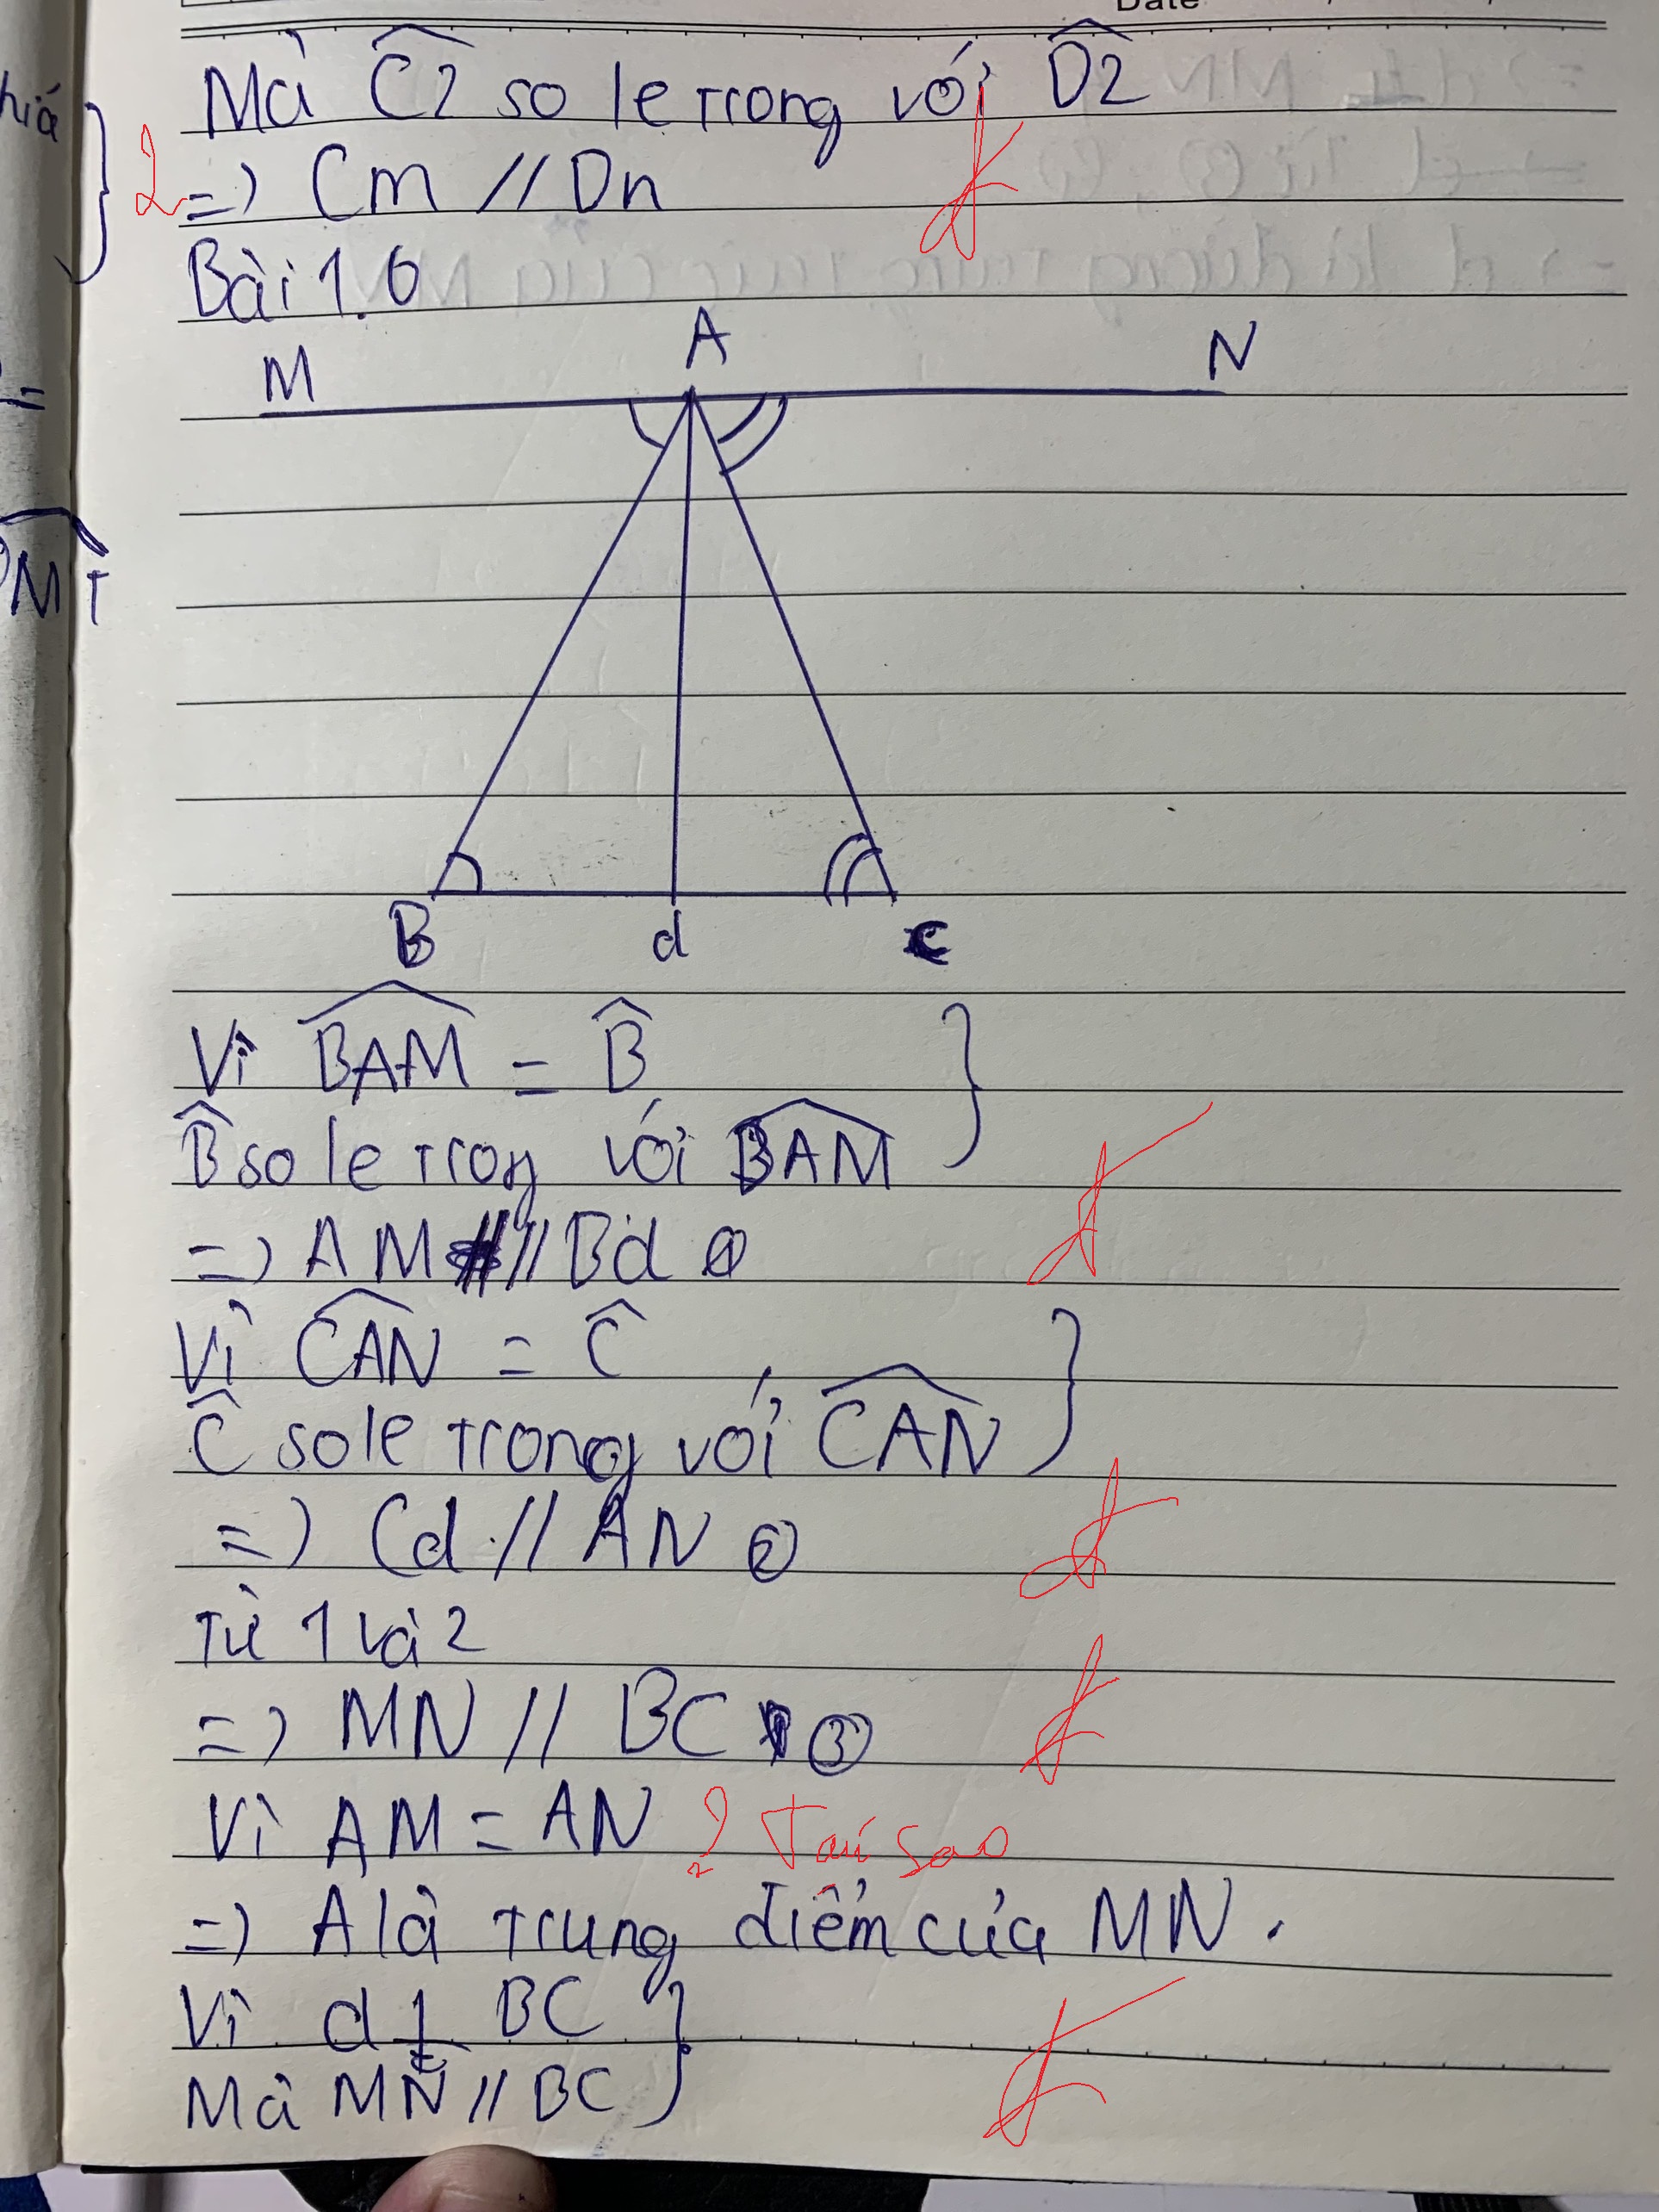 Date
Mà Ĉ2 so le trong với D̂2
2 => Cm // Dn
Bài 1.6
M A N
B d C
Vì BAM = B̂
B̂ so le trog với BAM
=> AM // Bd ①
Vì CAN = Ĉ
Ĉ so le trong với CAN
=> Cd // AN ②
Từ 1 và 2
=> MN // BC ③
Vì AM = AN ? Tại sao
=> A là trung điểm của MN.
Vì d ⊥ BC
Mà MN // BC